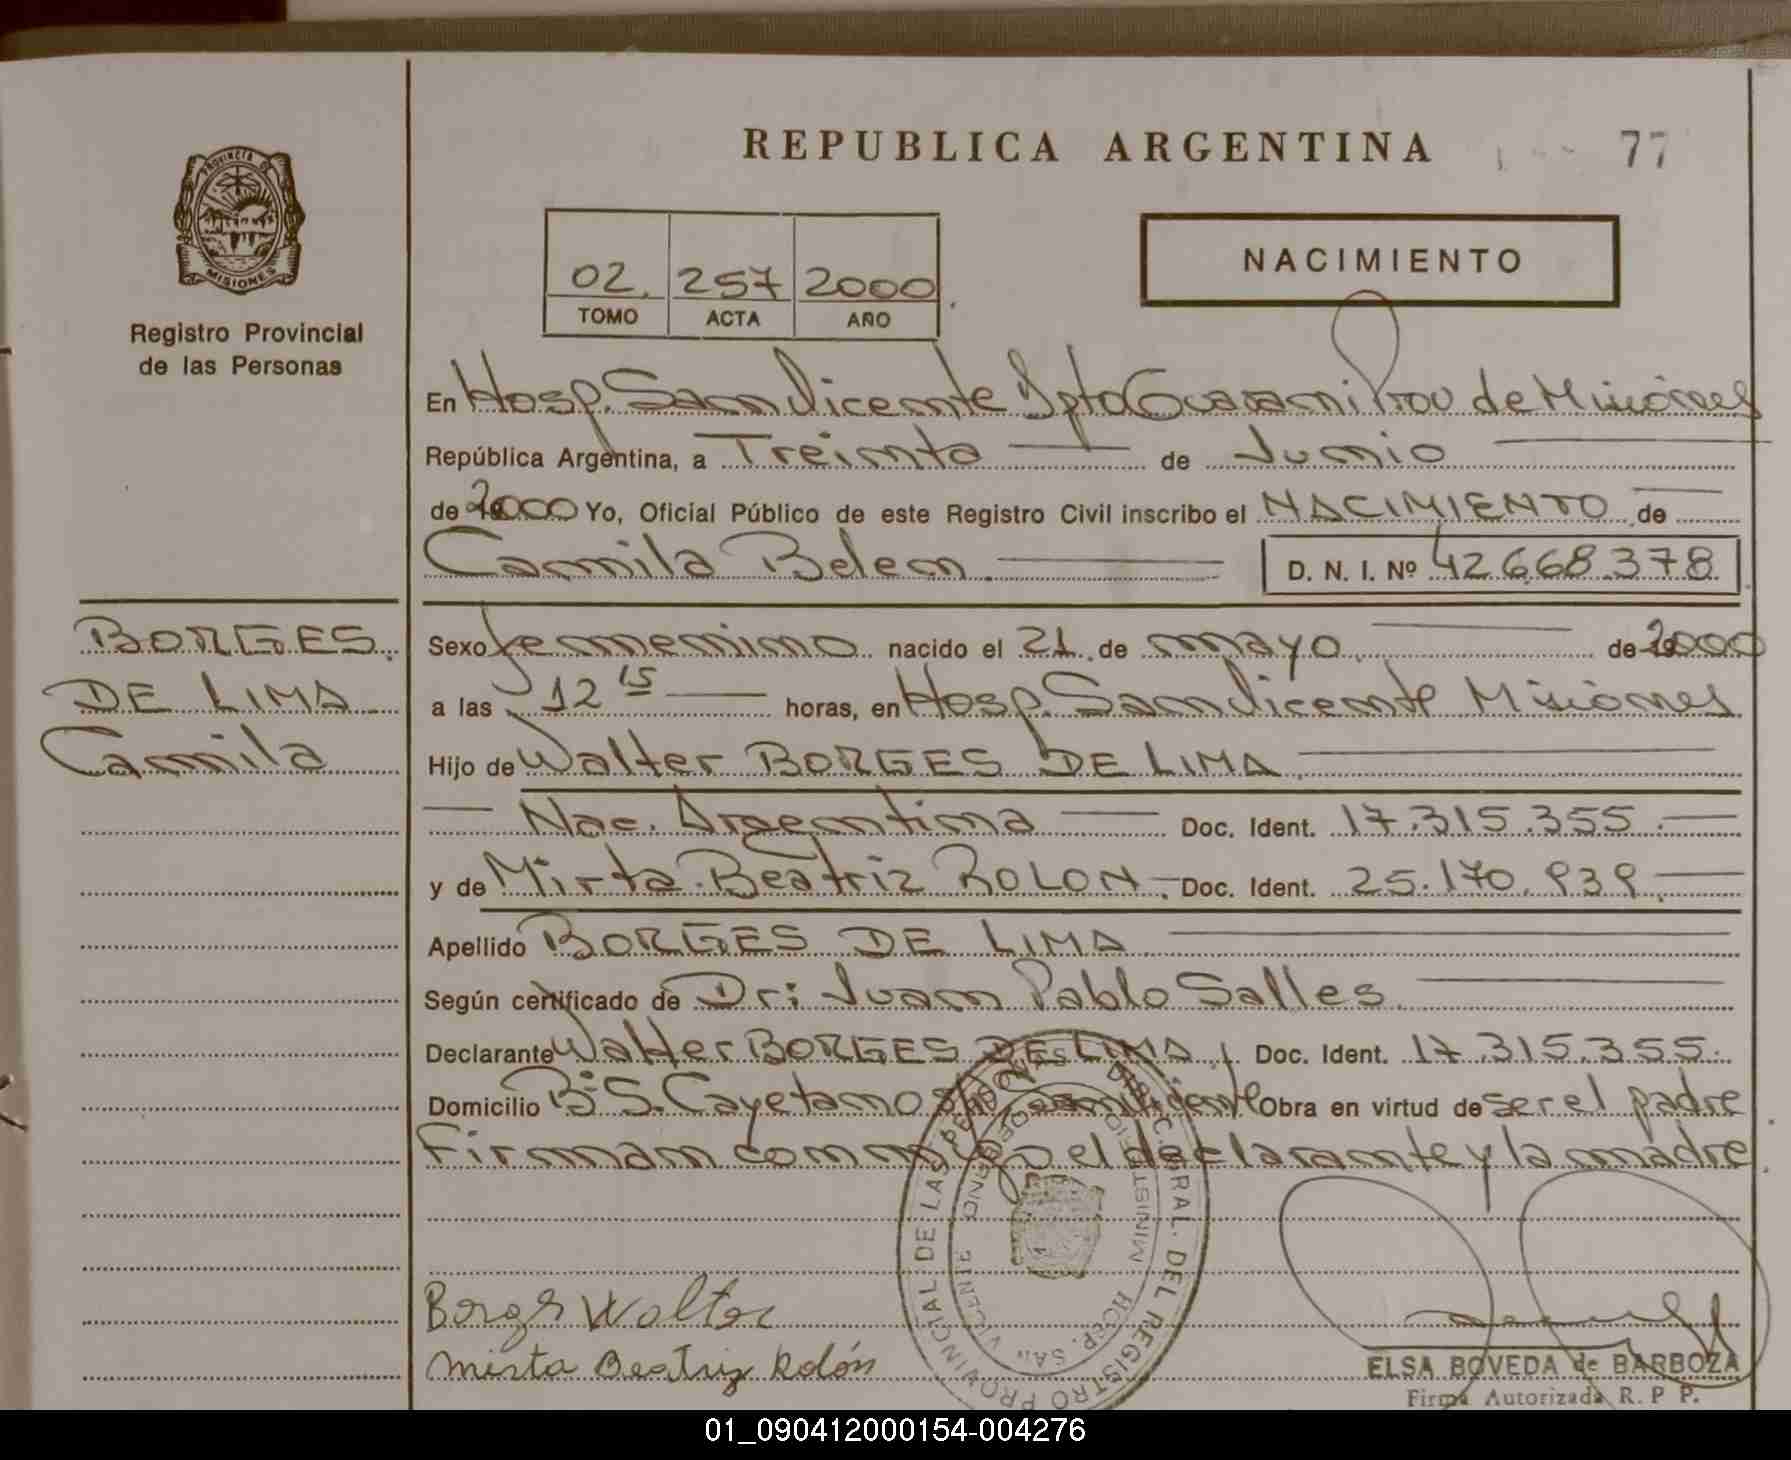 REPUBLICA ARGENTINA
77
PROVINCIA DE
MISIONES
Registro Provincial
de las Personas
02. 257 2000
TOMO ACTA AÑO
NACIMIENTO
En Hosp. San Vicente Dpto Guarani Prov de Misiones
República Argentina, a Treinta de Junio
de 2000 Yo, Oficial Público de este Registro Civil inscribo el NACIMIENTO de
Camila Belen D. N. I. Nº 42.668.378
BORGES
DE LIMA
Camila
Sexo femenino nacido el 21 de mayo de 2000
a las 12 15 horas, en Hosp. San Vicente Misiones
Hijo de Walter BORGES DE LIMA
Nac. Argentina Doc. Ident. 17.315.355
y de Mirta Beatriz ROLON Doc. Ident. 25.170.939
Apellido BORGES DE LIMA
Según certificado de Dr: Juan Pablo Salles
Declarante Walter BORGES DE LIMA Doc. Ident. 17.315.355
Domicilio Bº S. Cayetano San Vicente Obra en virtud de ser el padre
Firman conmigo el declarante y la madre
DIREC. GRAL. DEL REGISTRO PROVINCIAL DE LAS PERSONAS
Borges Walter
Mirta Beatriz Rolón
ELSA BOVEDA de BARBOZA
Firma Autorizada R. P P.
01_090412000154-004276